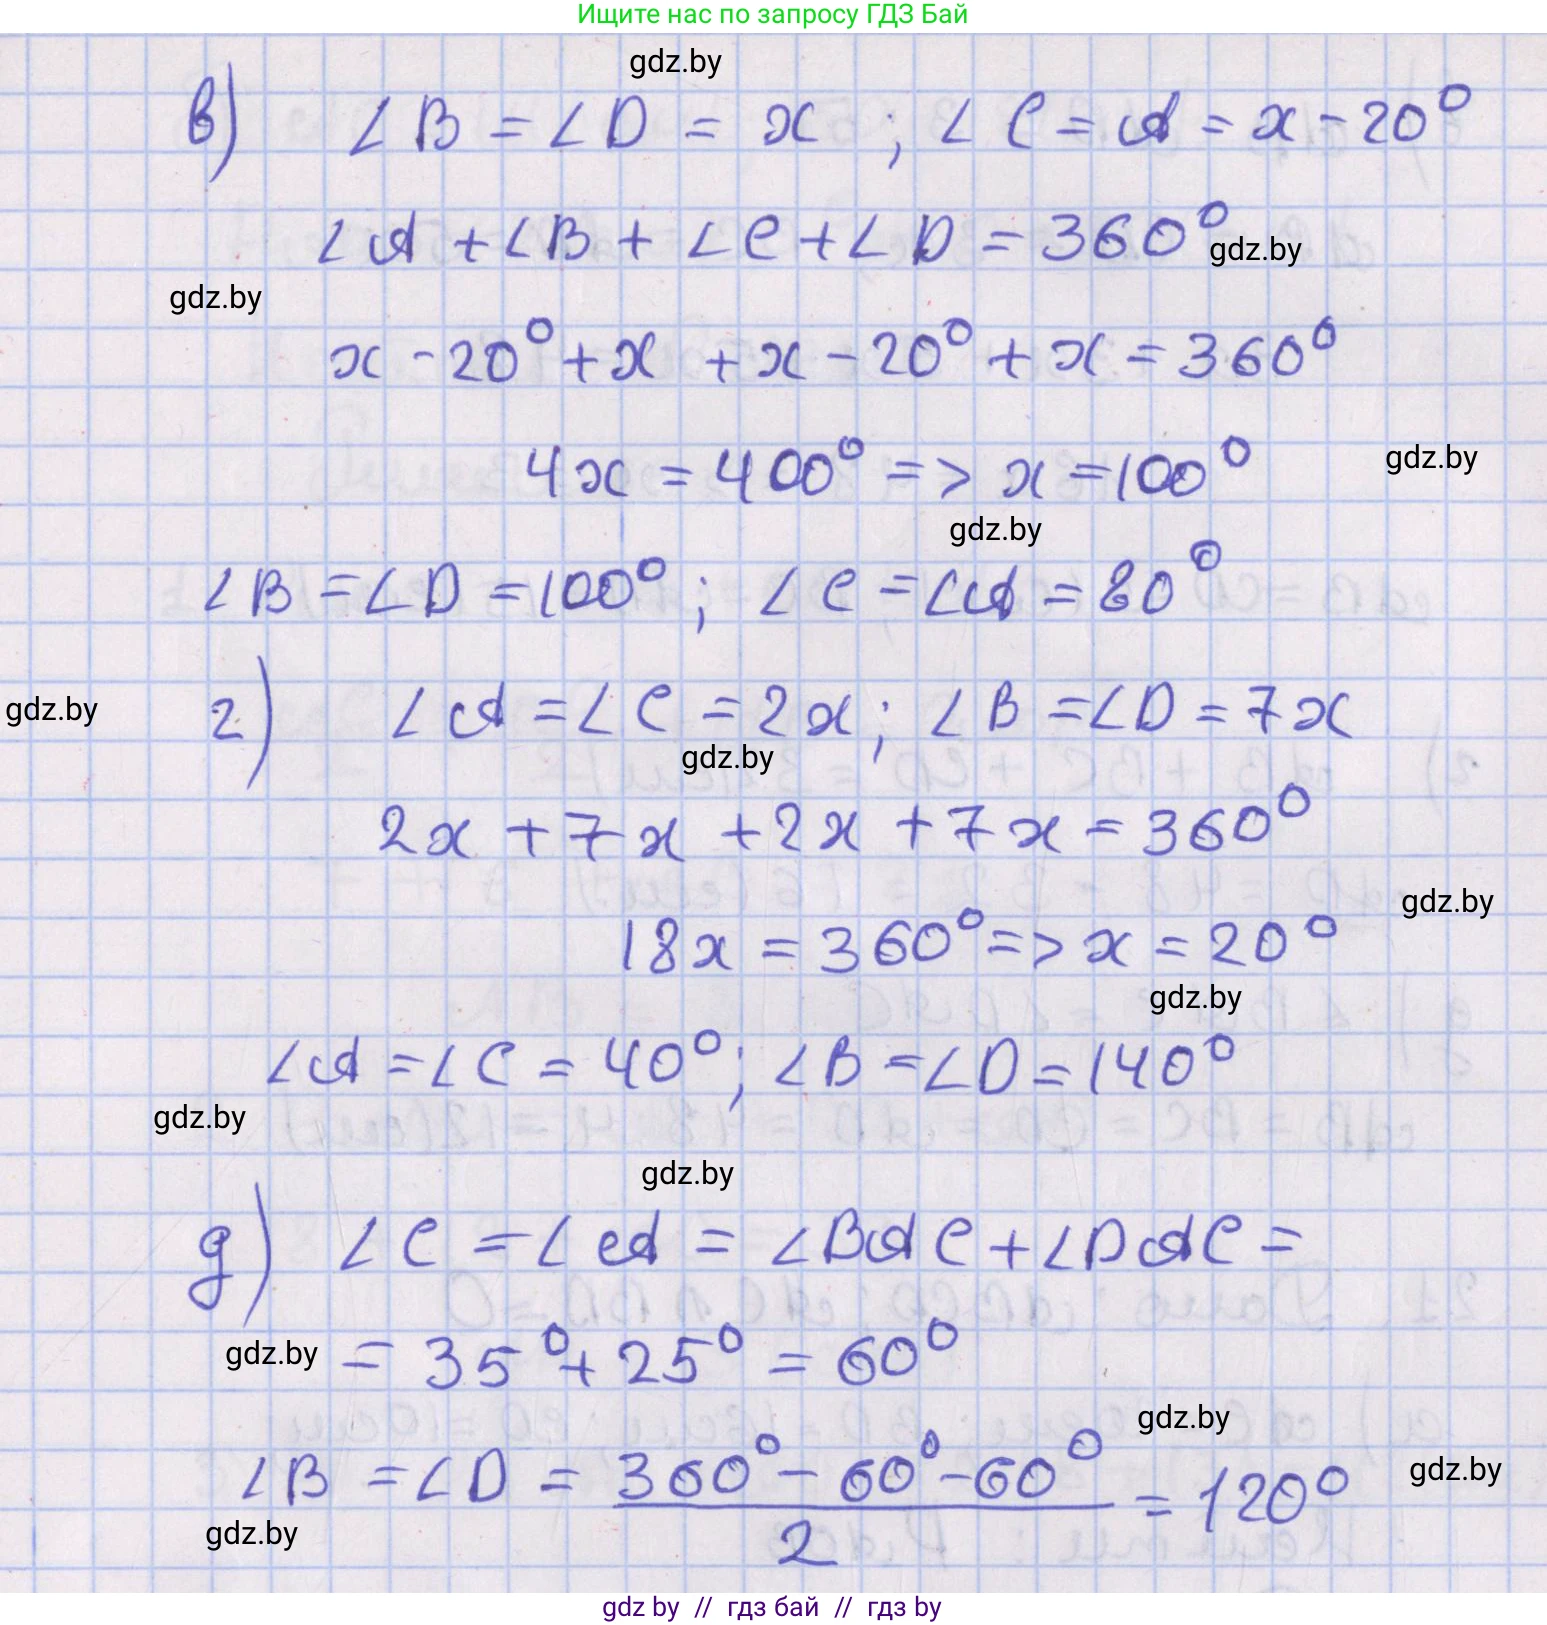 Ищите нас по запросу ГДЗ Бай
gdz.by
в) ∠B = ∠D = x ; ∠C = A = x - 20°
∠A + ∠B + ∠C + ∠D = 360°
gdz.by
gdz.by
x - 20° + x + x - 20° + x = 360°
4x = 400° => x = 100°
gdz.by
gdz.by
∠B = ∠D = 100° ; ∠C = ∠A = 80°
г) ∠A = ∠C = 2x ; ∠B = ∠D = 7x
gdz.by
gdz.by
2x + 7x + 2x + 7x = 360°
gdz.by
18x = 360° => x = 20°
gdz.by
∠A = ∠C = 40° ; ∠B = ∠D = 140°
gdz.by
gdz.by
д) ∠C = ∠A = ∠BAC + ∠DAC =
gdz.by
= 35° + 25° = 60°
gdz.by
gdz.by
∠B = ∠D = (360° - 60° - 60°)/2 = 120°
gdz.by
gdz by // гдз бай // гдз by